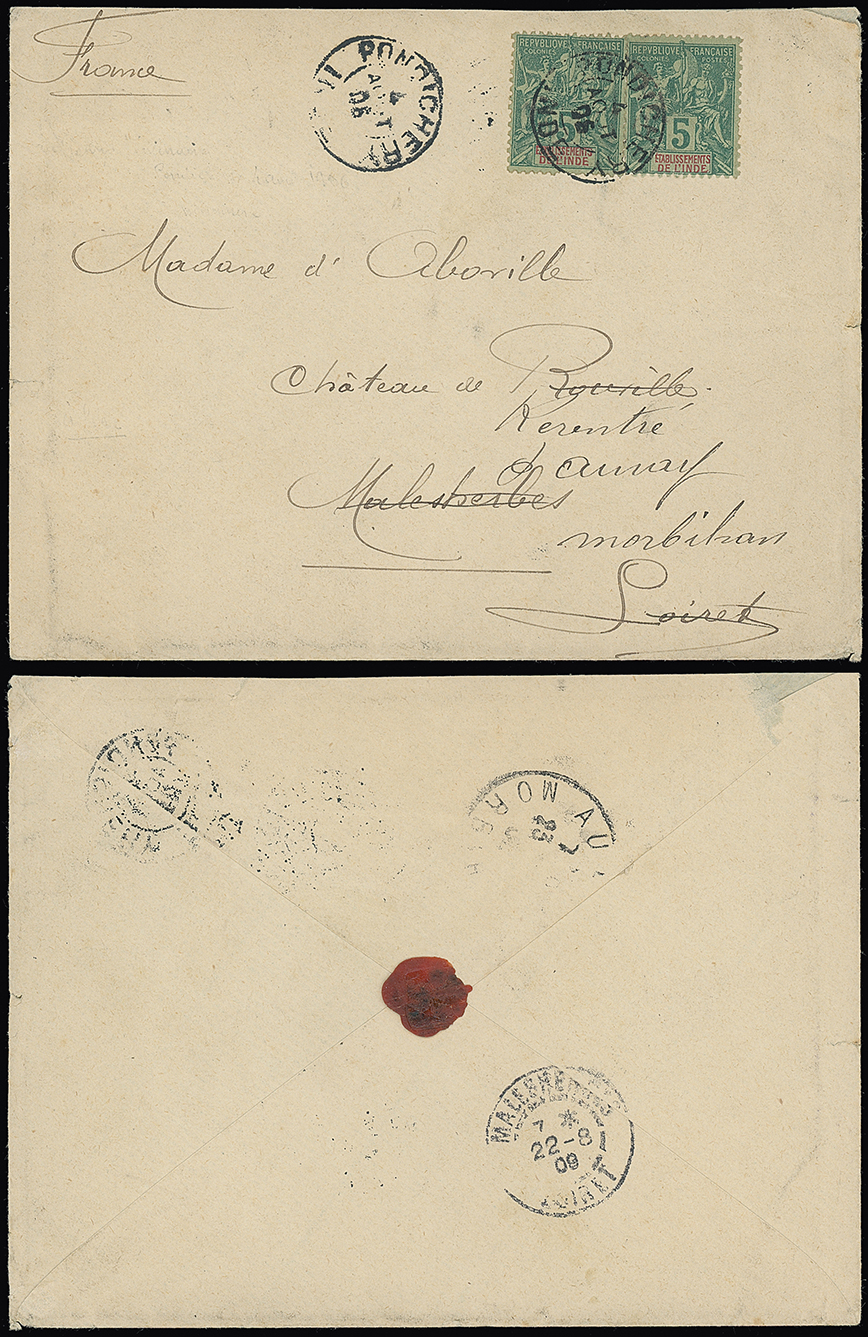 France
PONDICHERY
4
AOUT
06
REPVBLIQVE FRANÇAISE
COLONIES POSTES
5
ETABLISSEMENTS
DE L'INDE
REPVBLIQVE FRANÇAISE
COLONIES POSTES
5
ETABLISSEMENTS
DE L'INDE
PONDICHERY
4
AOUT
06
Madame d' Aboville
Château de Rouville
Kerentré
d aunay
Malesherbes
morbihan
Loiret
AU
MORB
23
MALESHERBES
7 *
22-8
09
LOIRET